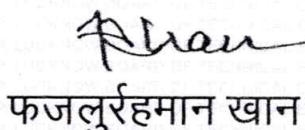 Khan
फजलुर्रहमान खान